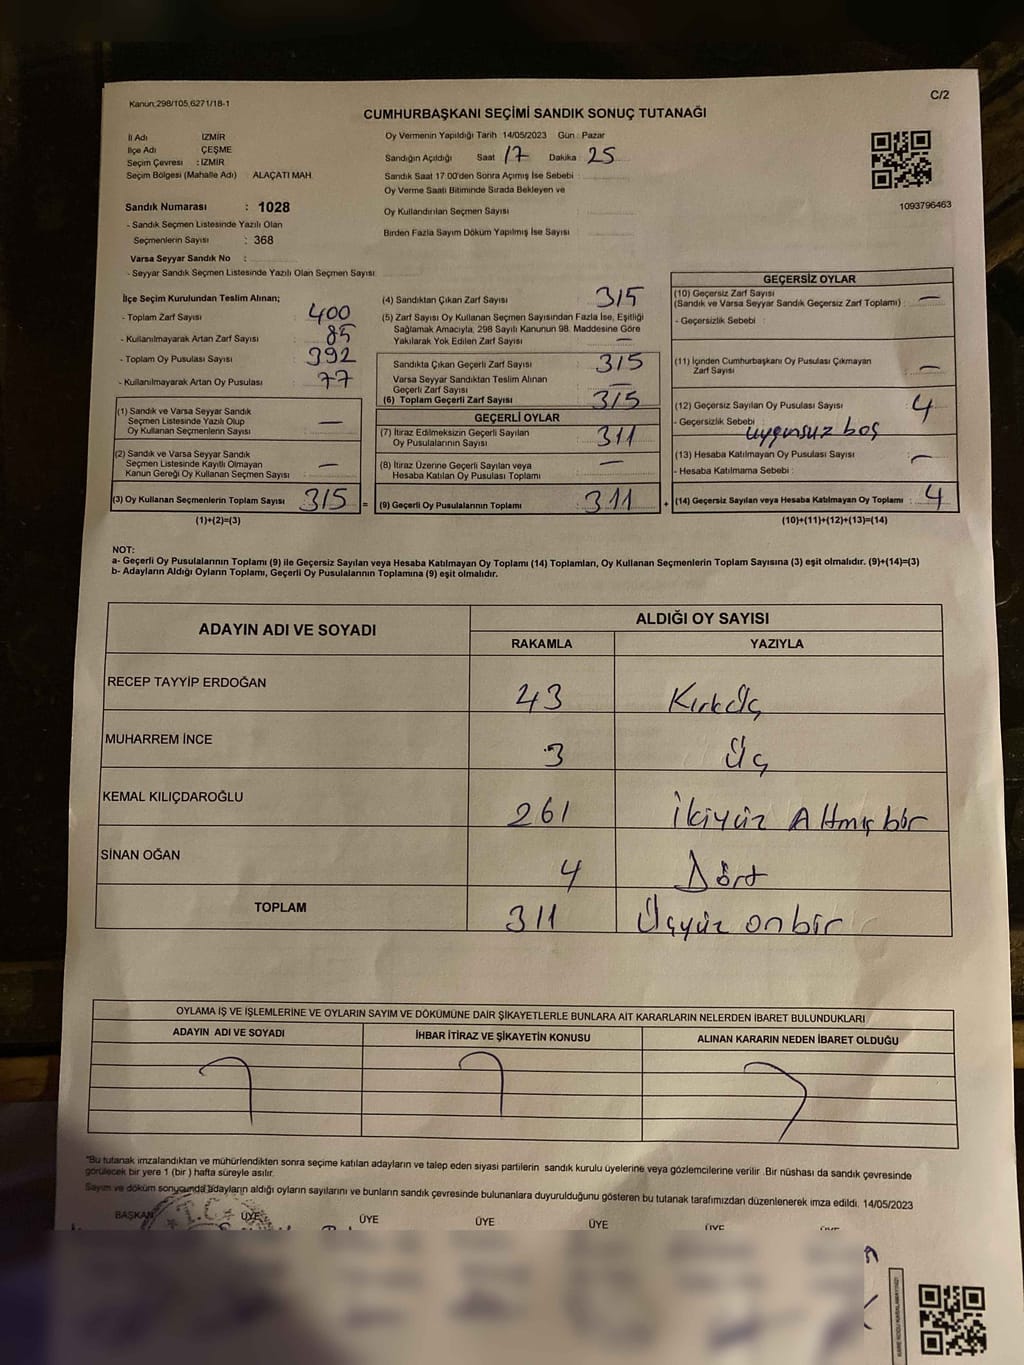 Kanun;298/105,6271/18-1
C/2
CUMHURBAŞKANI SEÇİMİ SANDIK SONUÇ TUTANAĞI
İl Adı İZMİR
İlçe Adı ÇEŞME
Seçim Çevresi : İZMİR
Seçim Bölgesi (Mahalle Adı) ALAÇATI MAH.
Sandık Numarası : 1028
- Sandık Seçmen Listesinde Yazılı Olan
Seçmenlerin Sayısı : 368
Varsa Seyyar Sandık No :
- Seyyar Sandık Seçmen Listesinde Yazılı Olan Seçmen Sayısı:
Oy Vermenin Yapıldığı Tarih 14/05/2023 Gün : Pazar
Sandığın Açıldığı Saat 17 Dakika 25
Sandık Saat 17:00'den Sonra Açımış İse Sebebi :
Oy Verme Saati Bitiminde Sırada Bekleyen ve
Oy Kullandırılan Seçmen Sayısı :
Birden Fazla Sayım Döküm Yapılmış İse Sayısı :
1093796463
İlçe Seçim Kurulundan Teslim Alınan;
- Toplam Zarf Sayısı : 400
- Kullanılmayarak Artan Zarf Sayısı : 85
- Toplam Oy Pusulası Sayısı : 392
- Kullanılmayarak Artan Oy Pusulası : 77
(1) Sandık ve Varsa Seyyar Sandık
Seçmen Listesinde Yazılı Olup
Oy Kullanan Seçmenlerin Sayısı : —
(2) Sandık ve Varsa Seyyar Sandık
Seçmen Listesinde Kayıtlı Olmayan
Kanun Gereği Oy Kullanan Seçmen Sayısı : —
(3) Oy Kullanan Seçmenlerin Toplam Sayısı : 315 =
(1)+(2)=(3)
(4) Sandıktan Çıkan Zarf Sayısı : 315
(5) Zarf Sayısı Oy Kullanan Seçmen Sayısından Fazla İse, Eşitliği
Sağlamak Amacıyla, 298 Sayılı Kanunun 98. Maddesine Göre
Yakılarak Yok Edilen Zarf Sayısı : —
Sandıkta Çıkan Geçerli Zarf Sayısı : 315
Varsa Seyyar Sandıktan Teslim Alınan
Geçerli Zarf Sayısı : —
(6) Toplam Geçerli Zarf Sayısı : 315
GEÇERLİ OYLAR
(7) İtiraz Edilmeksizin Geçerli Sayılan
Oy Pusulalarının Sayısı : 311
(8) İtiraz Üzerine Geçerli Sayılan veya
Hesaba Katılan Oy Pusulası Toplamı : —
(9) Geçerli Oy Pusulalarının Toplamı : 311 +
GEÇERSİZ OYLAR
(10) Geçersiz Zarf Sayısı
(Sandık ve Varsa Seyyar Sandık Geçersiz Zarf Toplamı) : —
- Geçersizlik Sebebi :
(11) İçinden Cumhurbaşkanı Oy Pusulası Çıkmayan
Zarf Sayısı : —
(12) Geçersiz Sayılan Oy Pusulası Sayısı : 4
- Geçersizlik Sebebi uygunsuz boş
(13) Hesaba Katılmayan Oy Pusulası Sayısı : —
- Hesaba Katılmama Sebebi :
(14) Geçersiz Sayılan veya Hesaba Katılmayan Oy Toplamı : 4
(10)+(11)+(12)+(13)=(14)
NOT:
a- Geçerli Oy Pusulalarının Toplamı (9) ile Geçersiz Sayılan veya Hesaba Katılmayan Oy Toplamı (14) Toplamları, Oy Kullanan Seçmenlerin Toplam Sayısına (3) eşit olmalıdır. (9)+(14)=(3)
b- Adayların Aldığı Oyların Toplamı, Geçerli Oy Pusulalarının Toplamına (9) eşit olmalıdır.
ADAYIN ADI VE SOYADI ALDIĞI OY SAYISI
RAKAMLA YAZIYLA
RECEP TAYYİP ERDOĞAN 43 Kırküç
MUHARREM İNCE 3 Üç
KEMAL KILIÇDAROĞLU 261 İkiyüz Altmış bir
SİNAN OĞAN 4 Dört
TOPLAM 311 Üçyüz onbir
OYLAMA İŞ VE İŞLEMLERİNE VE OYLARIN SAYIM VE DÖKÜMÜNE DAİR ŞİKAYETLERLE BUNLARA AİT KARARLARIN NELERDEN İBARET BULUNDUKLARI
ADAYIN ADI VE SOYADI İHBAR İTİRAZ VE ŞİKAYETİN KONUSU ALINAN KARARIN NEDEN İBARET OLDUĞU
*Bu tutanak imzalandıktan ve mühürlendikten sonra seçime katılan adayların ve talep eden siyasi partilerin sandık kurulu üyelerine veya gözlemcilerine verilir .Bir nüshası da sandık çevresinde
görülecek bir yere 1 (bir ) hafta süreyle asılır.
Sayım ve döküm sonucunda adayların aldığı oyların sayılarını ve bunların sandık çevresinde bulunanlara duyurulduğunu gösteren bu tutanak tarafımızdan düzenlenerek imza edildi. 14/05/2023
BAŞKAN ÜYE ÜYE ÜYE ÜYE ÜYE ÜYE
T.C.